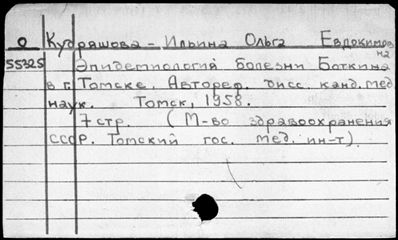 О Кудряшова - Ильина Ольга Евдокимовна
55325 Эпидемиология болезни Боткина
в г. Томске. Автореф. дисс. канд. мед.
наук. Томск, 1958.
7 стр. (М-во здравоохранения
СССР. Томский гос. мед. ин-т).